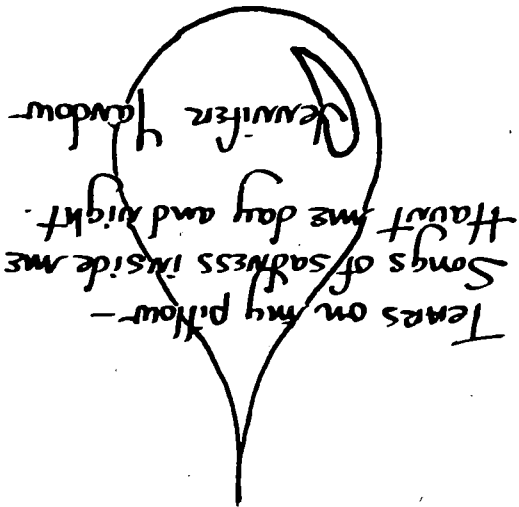 Tears on my pillow—
Songs of sadness inside me
Haunt me day and night.
Jennifer Yandow